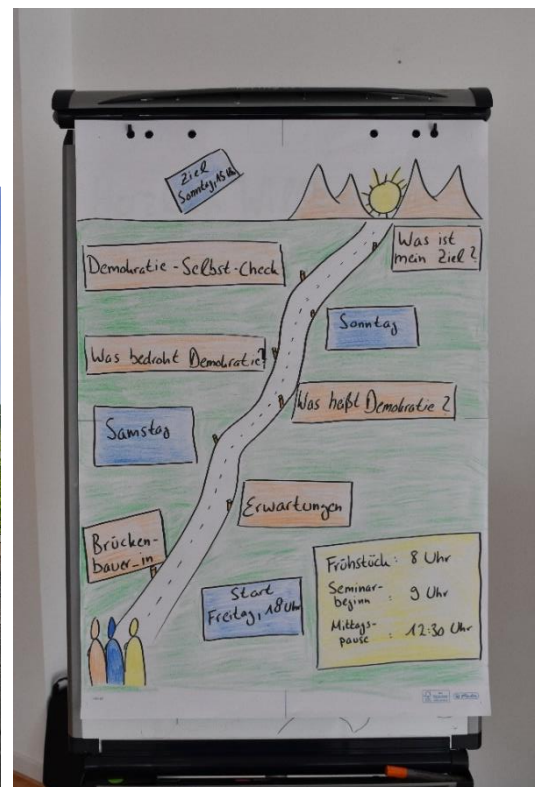 Ziel
Sonntag, 15 Uhr
Was ist
mein Ziel?
Demokratie-Selbst-Check
Sonntag
Was bedroht Demokratie?
Was heißt Demokratie?
Samstag
Erwartungen
Brücken-
bauer_in
Start
Freitag, 18 Uhr
Frühstück: 8 Uhr
Seminar-
beginn : 9 Uhr
Mittags-
pause : 12:30 Uhr